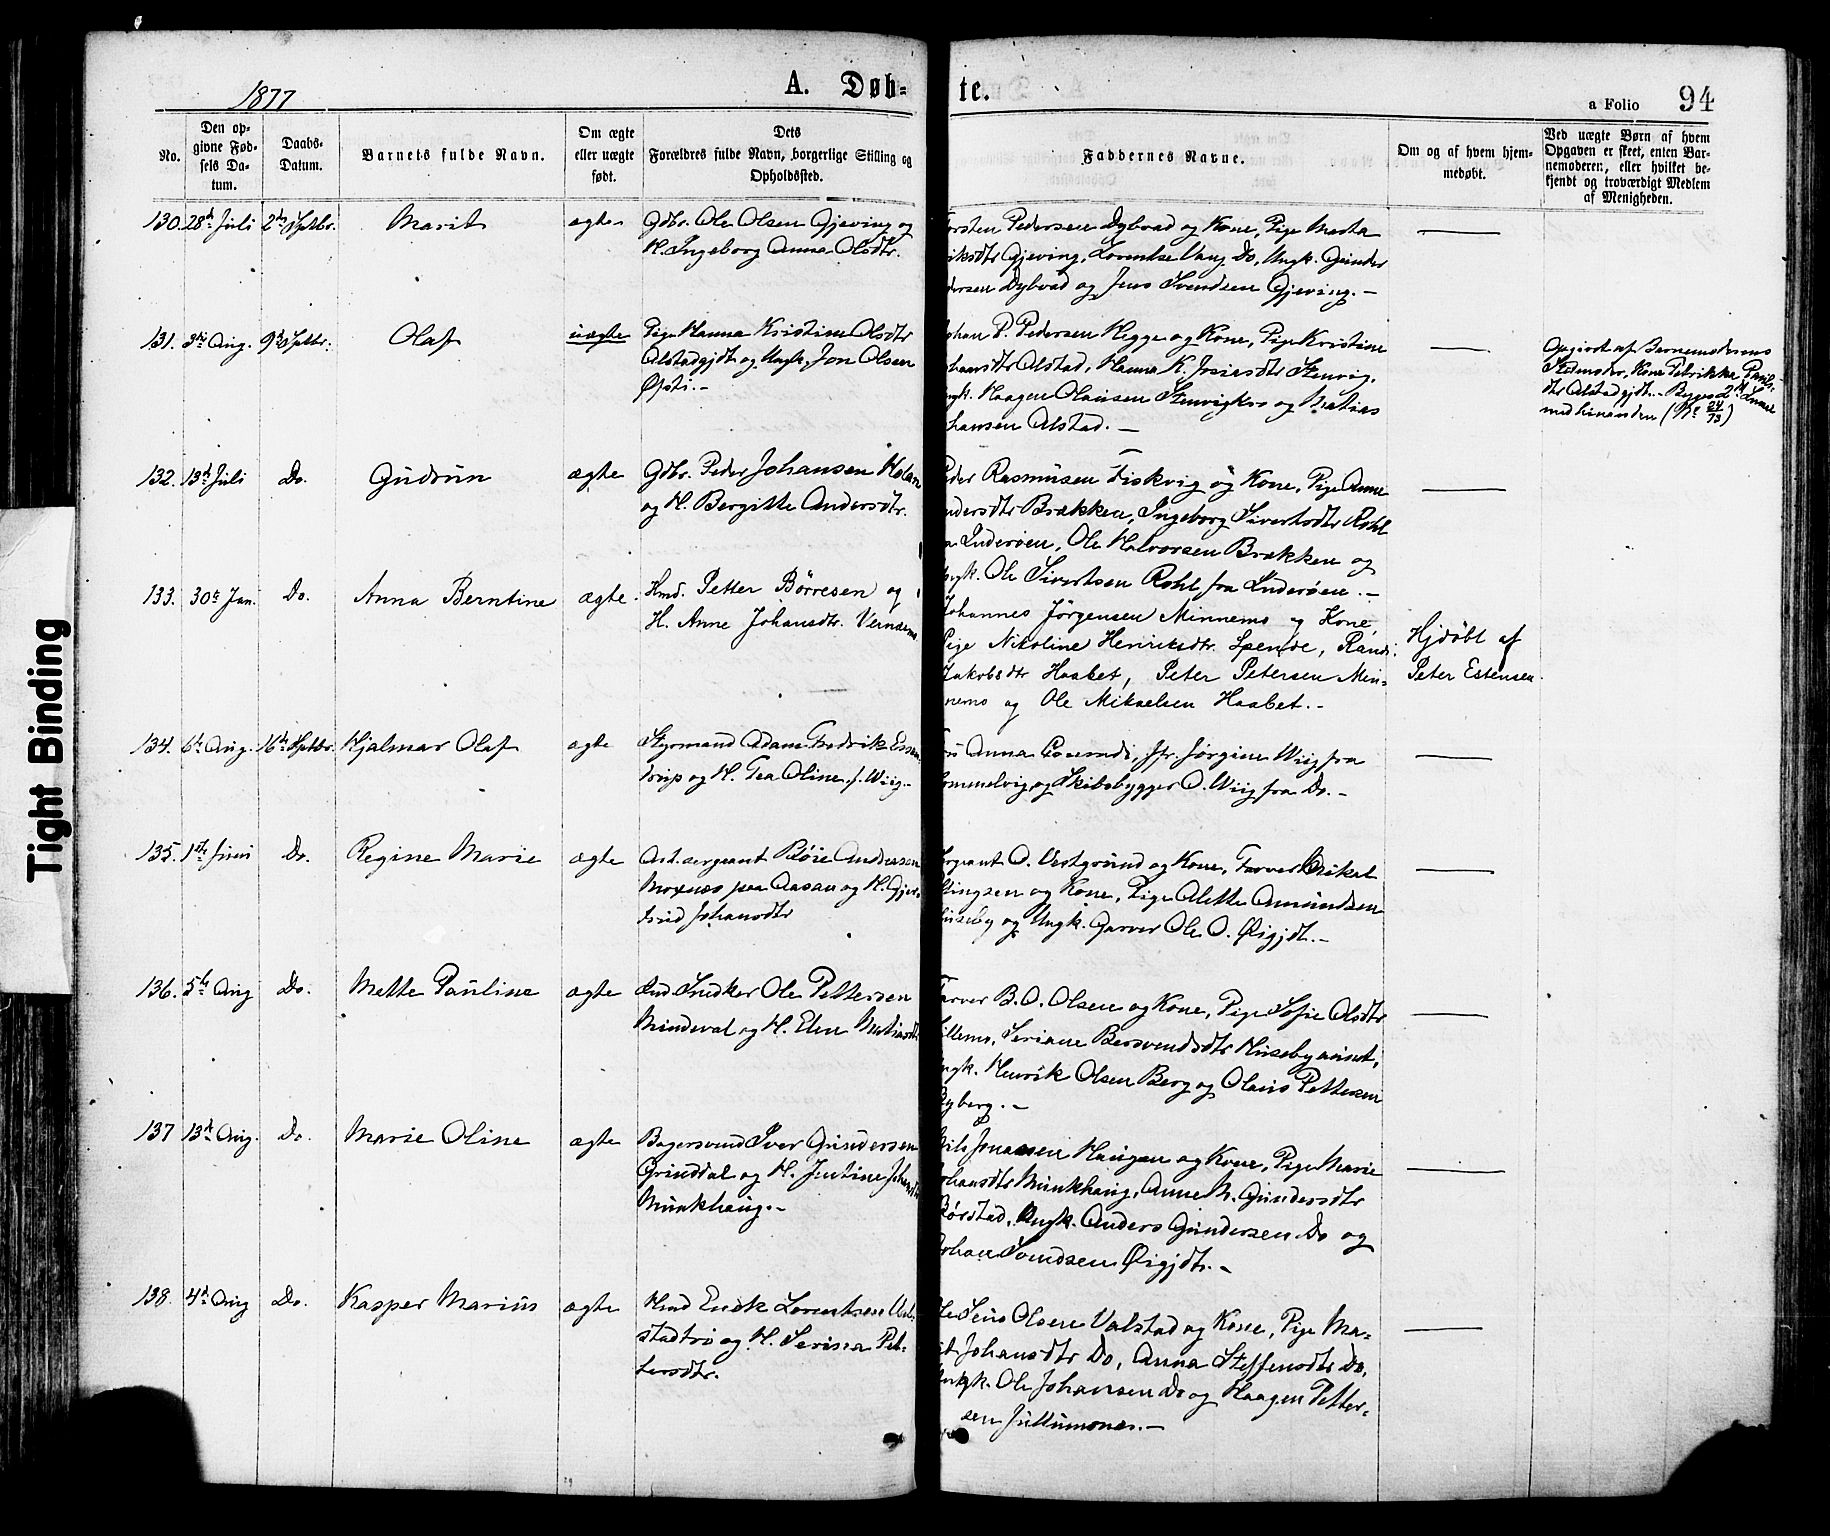 1877
A. Døb-
te.
a Folio 94
No.
Den op-
givne Fød-
sels Da-
tum.
Daabs-
Datum.
Barnets fulde Navn.
Om ægte
eller uægte
født.
Dets
Forældres fulde Navn, borgerlige Stilling og
Opholdssted.
Faddernes Navne.
Om og af hvem hjem-
medøbt.
Ved uægte Børn af hvem
Opgaven er skeet, enten Bar-
nemoderen, eller hvilket be-
kjendt og troværdigt Medlem
af Menigheden.
130. 28de Juli 2den Septbr. Marit ægte
Gdbr. Ole Olsen Gjeving og
H. Ingeborg Anna Olsdtr.
Torsten Pedersen Dybvad og Kone, Pige Marta
riksdtr Gjeving, Lorentse Vang Do, Ungk. Gunder
dersen Dybvad og Jens Svendsen Gjeving.-
131. 3die Aug. 9de Septbr. Olaf uægte
Pige Hanna Kristine Olsdtr
Alstadgjdt. og Ungk. Jon Olsen
Øfsti.-
Johan P. Pedersen Hegge og Kone, Pige Kristine
ohansdtr Alstad, Hanna K. Jesiasdtr Stenvig,
ngk. Haagen Olausen Stenvigkro og Bratias
hansen Alstad.-
Opgivet af Barnemoderens
Stedmoder, Kone Petrikka Pauls-
dtr Alstadgjdt.- Begges 2det Leierm.
med hinanden
132. 13de Juli Do. Gudrun ægte
Gdbr. Peder Johansen Holan
og H. Bergitte Andersdtr.
Peder Rasmusen Fiskvig og Kone, Pige Anne
ndersdtr Brækken, Ingeborg Sivertsdtr Rohl
a Inderøen, Ole Halvorsen Brækken og
Ungk. Ole Sivertsen Rohl fra Inderøen.-
133. 30te Jan. Do. Anna Berntine ægte.
Hmd. Petter Börresen og
H. Anne Johansdtr. Vernæsmo
Johannes Jörgensen Minnemo og Kone,
Pige Nikoline Henriksdtr. Spende, Randi
Jakobsdtr Haabet, Peter Petersen Min-
nemo og Ole Mikaelsen Haabet.-
Hjdöbt af
Peter Estensen.
134. 6te Aug. 16de Septbr. Hjalmar Olaf ægte
Styrmand Adam Fredrik Essen-
drup og H. Tea Oline f. Wiig.-
Fru Anna Jfr. Jørgine Wiig fra
ommelvig, og Skibsbygger O. Wiig fra Do.-
135. 1ste Juni Do. Regine Marie ægte
Ast. sergeant Böie Andersen
Moxnæs paa Aasan og H. Gjer-
trud Johansdtr
Sergeant O. Vestgrund og Kone, Farver Mikal
llingsen og Kone, Pige Alette Amundsen
Huseby og Ungk. Garver Ole O. Øigjdt.-
136. 5te Aug Do. Mette Pauline ægte
Ind. Snedker Ole Pettersen
Mindeval og H. Elen Matiasdtr
Farver B. O. Olsen og Kone, Pige Sofie Olsdtr
illemo, Seriane Bersvendsdtr Husebyaunet,
ngk. Henrik Olsen Berg og Olaus Pettersen
Ryberg.-
137 13de Aug. Do. Marie Oline ægte
Bagersvend Iver Gundersen
Grinddal og H. Justine Johansdtr
Munkhaug.-
Nils Jonassen Haugan og Kone, Pige Marie
ohansdtr Munkhaug, Anne M. Gundersdtr
Børstad, Ungk. Anders Gundersen Do og
Johan Svendsen Øigjdt.-
138. 4de Aug Do. Kasper Marius ægte
Hmd Enok Lorentsen Val-
stadtrø og H. Serina Pet-
tersdtr.
Ole Jens Olsen Valstad og Kone, Pige Ma-
rit Johansdtr Do, Anna Steffensdtr Do,
Ungk. Ole Johansen Do og Haagen Petter-
sen Jullumoner.-
Tight Binding